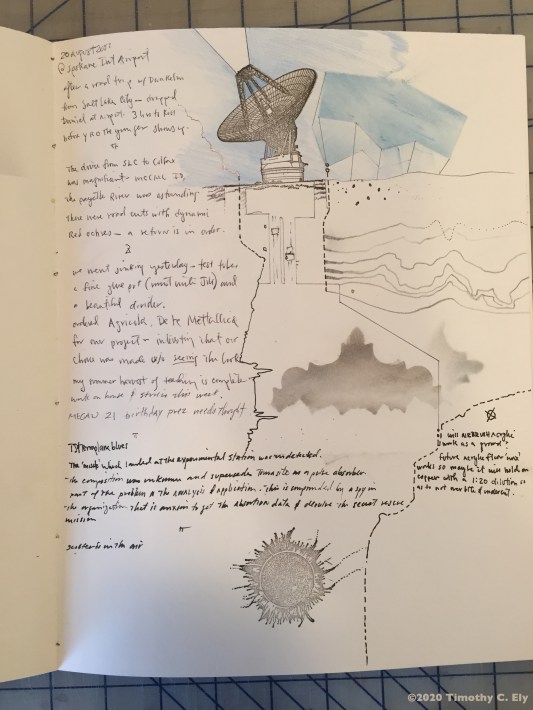 @ Spokane Int Airport
after a road trip w/
from Salt Lake City — dropped
Daniel at airport. 3 hrs to kill
before
The drive from SLC to Colfax
was magnificent
the Payette River was astounding
there were road cuts with dynamic
Red ochres — a return is in order.
we went junking yesterday —
a fine glue pot (must write Jill) and
a beautiful divider.
ordered Agricola, De Re Metallica
for our project — interesting that our
choice was made w/o seeing the book
my summer harvest of teaching is complete
work on house & studio
birthday prez needs thought
The which landed at the experimental station was undetected.
the composition was unknown and superseded as a pulse absorber.
part of the problem is the analysis & application. This is compounded by a spy in
the organization that is anxious to get the absorption data & dissolve the secret rescue
mission
scatter is in the air
will AIRBRUSH acrylic
work as a ground?
future acrylic floor 'wax'
works so maybe it will hold on
copper with a 1:20 dilution so
as to not overbite & undercut.
©2020 Timothy C. Ely